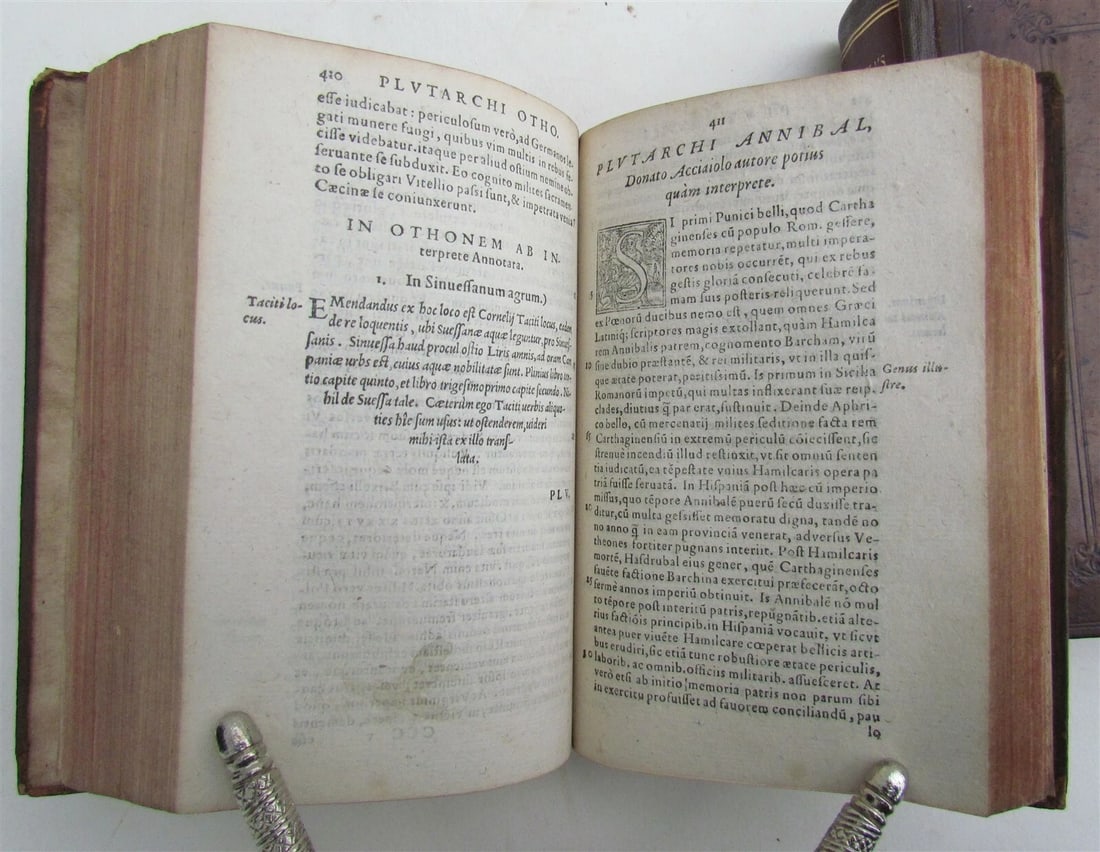 410 PLVTARCHI OTHO.
esse iudicabat: periculosum verò, ad Germanos le-
gati munere fungi, quibus vim multis in rebus fe-
cisse videbatur. itaque per aliud ostium nemine ob-
seruante se subduxit. Eo cognito milites sacramen-
to se obligari Vitellio passi sunt, & impetrata venia
Cæcinæ se coniunxerunt.
IN OTHONEM AB IN-
terprete Annotata.
1. In Sinuessanum agrum.)
Taciti lo-
cus.
EMendandus ex hoc loco est Cornelij Taciti locus, eadem
de re loquentis, ubi Suessanæ aquæ leguntur, pro Sinues-
sanis. Sinuessa haud procul ostio Liris amnis, ad oram Cam
paniæ urbs est, cuius aquæ nobilitatæ sunt. Plinius libro
tio capite quinto, et libro trigesimoprimo capite secundo. Ni-
hil de Suessa tale. Cæterùm ego Taciti uerbis aliquo-
ties hîc sum usus: ut ostenderem, uideri
mihi ista ex illo trans-
lata.
PLV.
411
PLVTARCHI ANNIBAL,
Donato Acciaiolo autore potius
quàm interprete.
SI primi Punici belli, quod Cartha
ginenses cū populo Rom. gessere,
memoria repetatur, multi impera-
tores nobis occurrēt, qui ex rebus
gestis gloriā consecuti, celebrē fa-
mam suis posteris reliquerunt. Sed
ex Pœnorū ducibus nemo est, quem omnes Græci
Latiniq; scriptores magis extollant, quàm Hamilca
rem Annibalis patrem, cognomento Barcham, virū
sine dubio præstantē, & rei militaris, vt in illa quis-
que ætate poterat, peritissimū. Is primum in Sicilia
Genus illu-
stre.
Romanorū impetū, qui multas inflixerant suæ reip.
clades, diutius q̄ par erat, sustinuit. Deinde Aphri-
co bello, cū mercenarij milites seditione facta rem
Carthaginensiū in extremū periculū cōiecissent, sic
strenuè incendiū illud restinxit, vt sic omniū senten
tia iudicatū, ea tēpestate vnius Hamilcaris opera pa
triā fuisse seruatā. In Hispaniā post hæc cū imperio
missus, quo tēpore Annibalē puerū secū duxisse tra-
ditur, cū multa gessisset memoratu digna, tandē no
no anno q̄ in eam prouinciā venerat, aduersus Ve-
theones fortiter pugnans interiit. Post Hamilcaris
mortē, Hasdrubal eius gener, quē Carthaginenses
fauēte factione Barchina exercitui præfecerāt, octo
fermè annos imperiū obtinuit. Is Annibalē nō mul
to tēpore post interitū patris, repugnātib. etiā alte-
rius factiōis principib. in Hispaniā vocauit, vt sicut
antea puer viuēte Hamilcare cœperat bellicis arti-
bus erudiri, sic etiā tunc robustiore ætate periculis,
laborib. ac omnib. officiis militarib. assuesceret. Ac
verò etsi ab initio memoria patris non parum sibi
in exercitu profuisset ad fauorem conciliandū, pau
lò